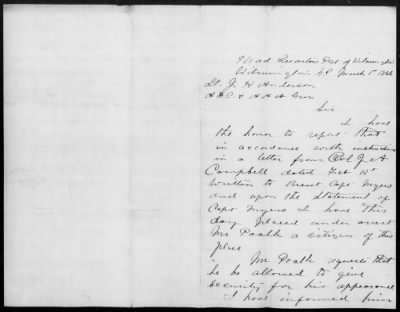 Head Quarters Post of Wilmington
Wilmington N.C. March 1st 1866
Lt. J. H. Anderson
A.D.C. & A.A.A. Gen
Sir
I have
the honor to report that
in accordance with instructions
in a letter from Col J A
Campbell dated Feb
written to Brevet Capt Myers
and upon the statement of
Capt Myers I have this
day placed under arrest
Mr Poalk a citizen of this
place
Mr Poalk requests that
he be allowed to give
security for his appearance
I had informed him